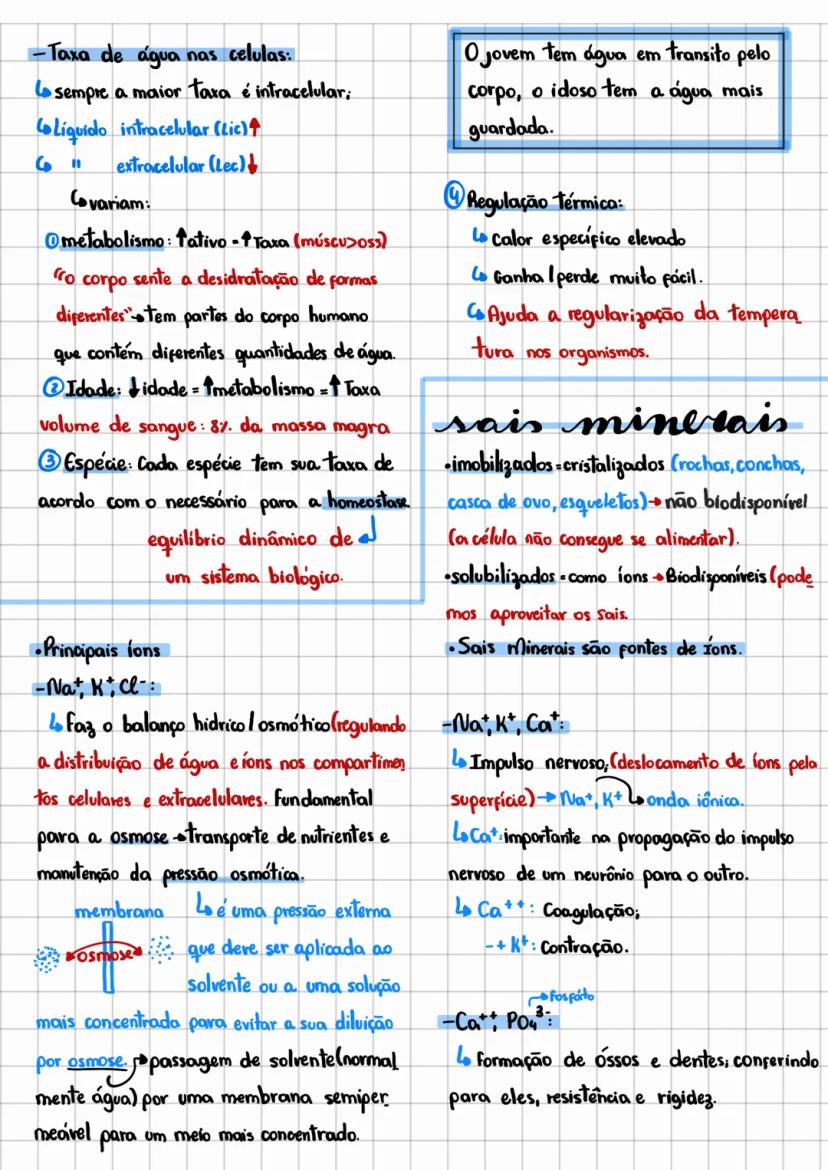 -Taxa de água nas celulas:
↳ sempre a maior taxa é intracelular;
↳ Líquido intracelular (Lic)↑
↳ " extracelular (Lec)↓
↳ variam:
① metabolismo: ↑ativo = ↑Taxa (múscu>oss)
"o corpo sente a desidratação de formas
diferentes"→tem partes do corpo humano
que contém diferentes quantidades de água.
② Idade: ↓idade = ↑metabolismo = ↑ Taxa
volume de sangue: 8% da massa magra
③ Espécie: Cada espécie tem sua taxa de
acordo com o necessário para a homeostase.
equilíbrio dinâmico de
um sistema biológico.
O jovem tem água em transito pelo
corpo, o idoso tem a água mais
guardada.
④ Regulação térmica:
↳ Calor específico elevado
↳ Ganha/perde muito fácil.
↳ Ajuda a regularização da tempera
tura nos organismos.
sais minerais
•imobilizados=cristalizados (rochas, conchas,
casca de ovo, esqueletos)→não biodisponível
(a célula não consegue se alimentar).
•solubilizados=como íons→Biodisponíveis (pode
mos aproveitar os sais.
•Sais Minerais são fontes de íons.
•Principais íons
-Na⁺, K⁺, Cl⁻:
↳ Faz o balanço hidrico/osmótico (regulando
a distribuição de água e íons nos compartimen
tos celulares e extracelulares. Fundamental
para a osmose→transporte de nutrientes e
manutenção da pressão osmótica.
membrana
osmose
↳ é uma pressão externa
que deve ser aplicada ao
solvente ou a uma solução
mais concentrada para evitar a sua diluição
por osmose. →passagem de solvente (normal
mente água) por uma membrana semiper
meável para um meio mais concentrado.
-Na⁺, K⁺, Ca⁺:
↳ Impulso nervoso; (deslocamento de íons pela
superfície)→Na⁺, K⁺ ↳ onda iônica.
↳ Ca⁺: importante na propagação do impulso
nervoso de um neurônio para o outro.
↳ Ca⁺⁺: Coagulação;
-+ K⁺: Contração.
→fosfato
-Ca⁺⁺, PO₄³⁻:
↳ Formação de óssos e dentes; conferindo
para eles, resistência e rigidez.